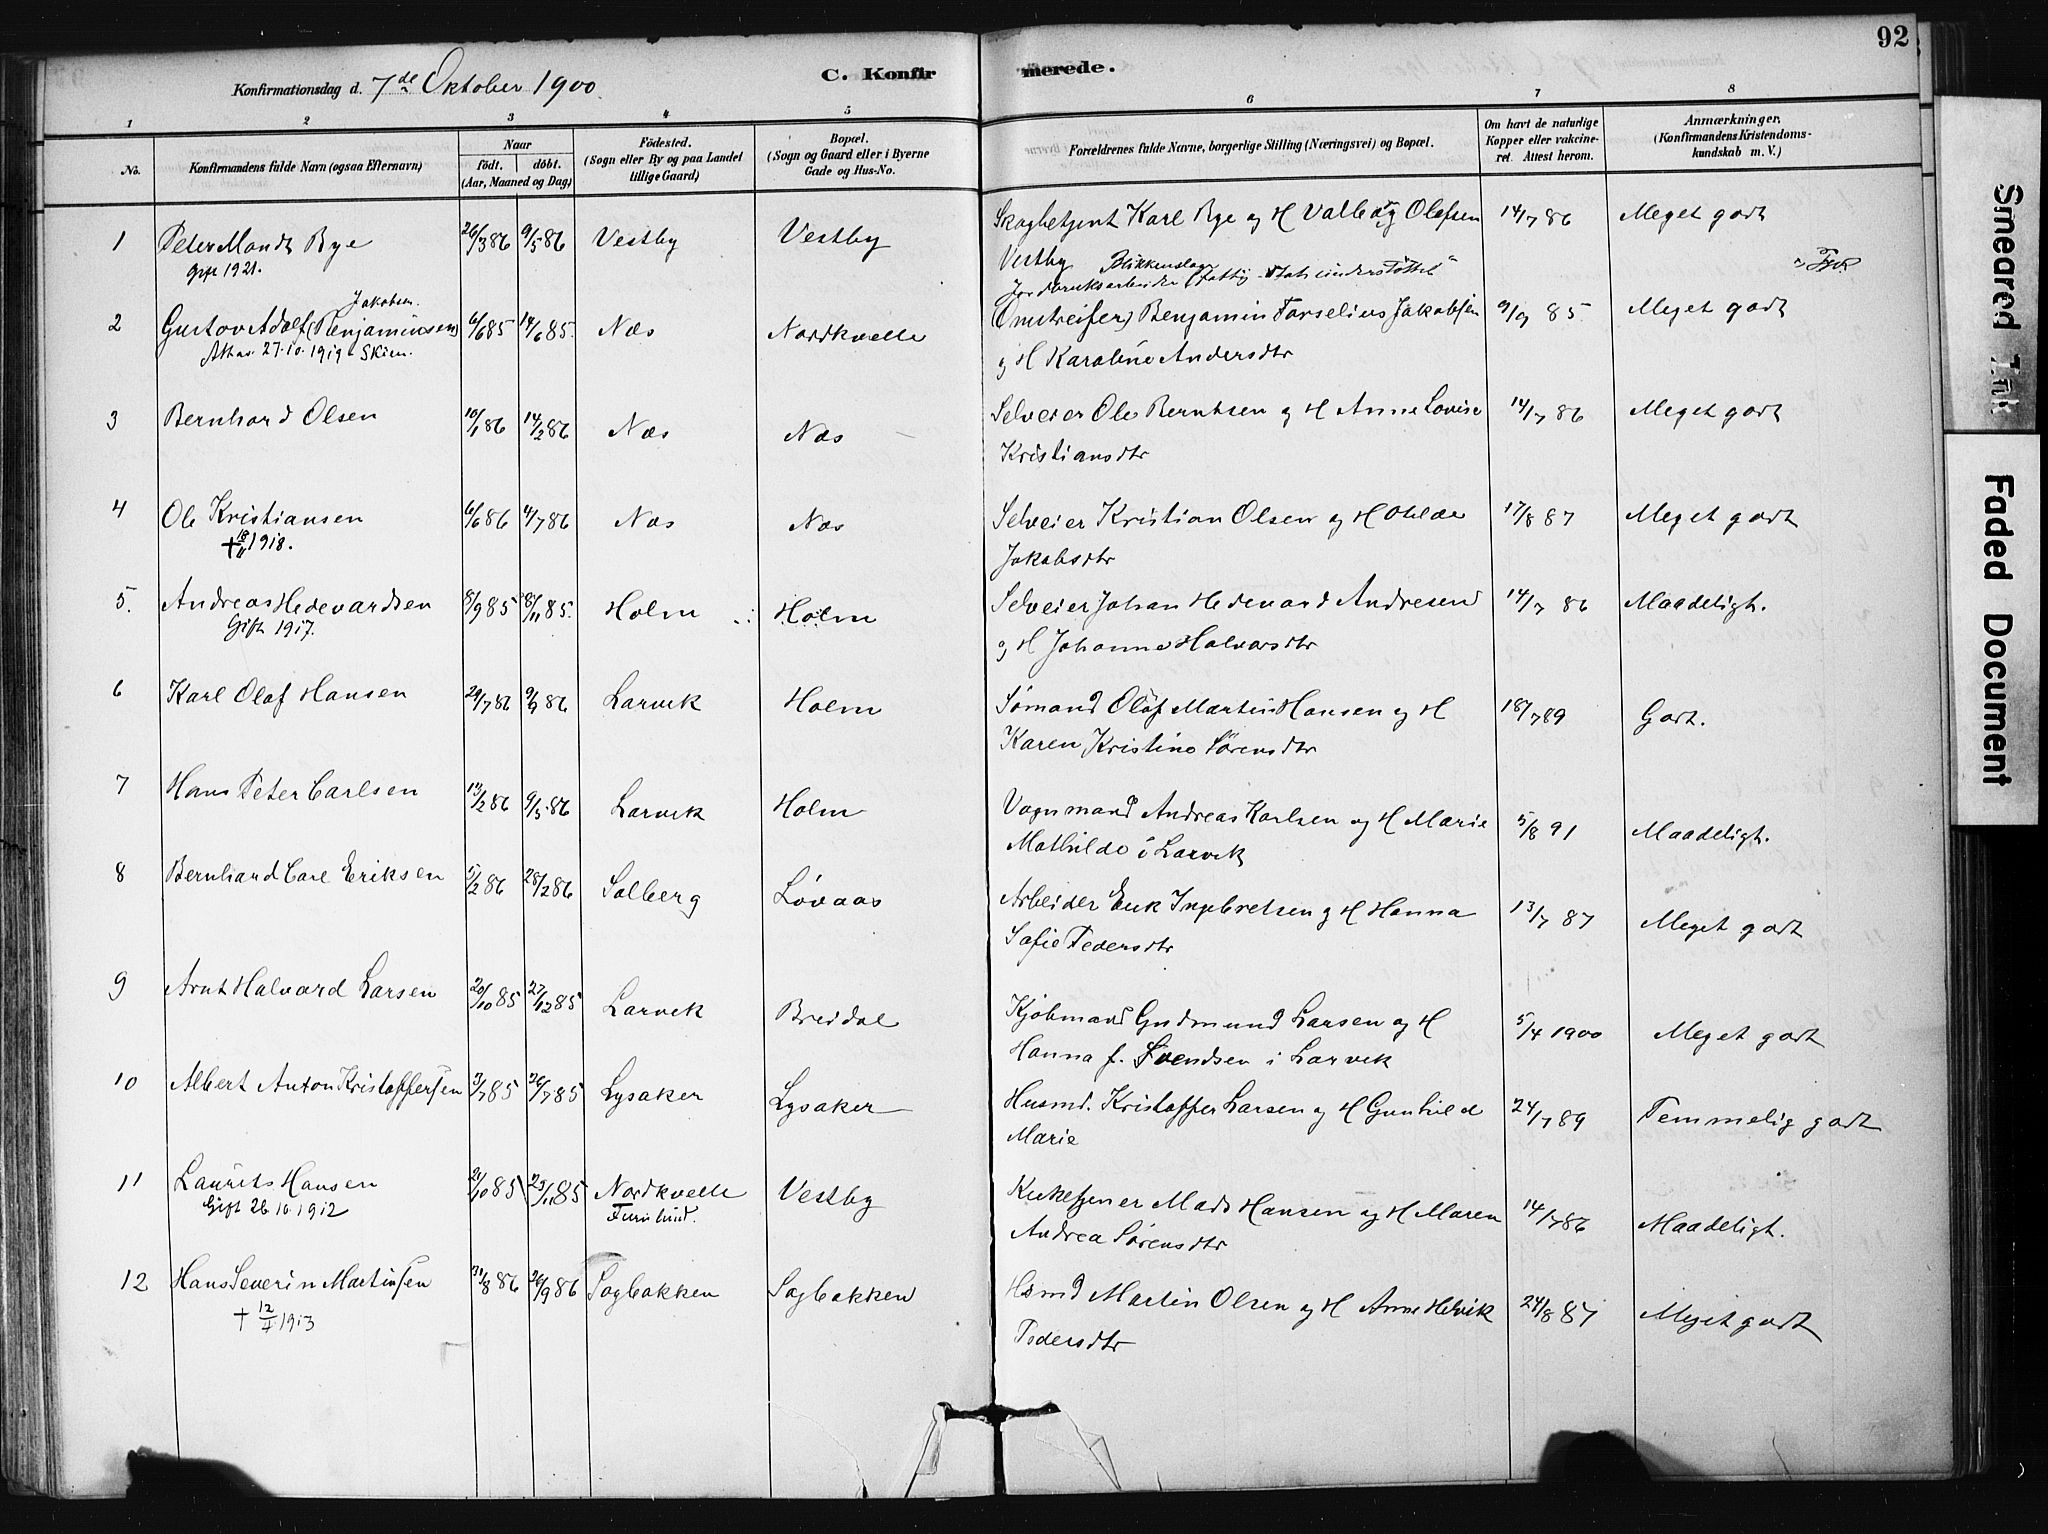 92
Konfirmationsdag d. 7de Oktober 1900.
C. Konfirmerede.
1 2 3 4 5 6 7 8
No.
Konfirmandens fulde Navn (ogsaa Efternavn)
Naar
født. døbt.
(Aar, Maaned og Dag)
Fødested.
(Sogn eller By og paa Landet
tillige Gaard)
Bopæl.
(Sogn og Gaard eller i Byerne
Gade og Hus-No.
Forældrenes fulde Navne, borgerlige Stilling (Næringsvei) og Bopæl.
Om havt de naturlige
Kopper eller vakcine-
ret. Attest herom.
Anmærkninger.
(Konfirmandens Kristendoms-
kundskab m. V.)
1 Peter Mandt Bye 26/3 86 9/5 86 Vestby Vestby Skogbetjent Karl Bye og H Valborg Olefsen 14/7 86 Meget godt
Gift 1921.
Vestby
Blikkenslager
Jordbruksarbeider
Jakobsen.
2 Gustav Adolf (Benjaminsen) 6/6 85 14/6 85. Næs Nordkvelle (Omstreifer) Benjamin Farselius Jakobsen 9/9 85. Meget godt
Attas. 27.10.1919 Skien.
og H Karoline Andersdtr
3 Bernhard Olsen 10/1 86 14/2 86 Næs Næs Selveier Ole Berntsen og H Anne Lovise 14/7 86 Meget godt
Kristiansdtr
4 Ole Kristiansen 6/6 86 4/7 86 Næs Næs Selveier Kristian Olsen og H Otilde 17/8 87 Meget godt
+ 18/11 1918.
Jakobsdtr
5. Andreas Hedevardsen 8/9 85 8/11 85. Holm Holm Selveier Johan Hedevard Andresen 14/7 86 Maadeligt.
Gift 1917.
og H Johanne Halvorsdtr
6 Karl Olaf Hansen 29/7 86 9/9 86 Larvik Holm Sømand Olaf Martin Hansen og H 18/7 89 Godt.
Karen Kristine Sørensdtr
7 Hans Peter Carlsen 13/2 86 9/5 86 Larvik Holm Vognmand Andreas Karlsen og H Marie 5/8 91 Maadeligt.
Mathilde i Larvik
8 Bernhard Carl Eriksen 5/2 86 28/2 86 Solberg Løvaas Arbeider Erik Ingebretsen og H Hanna 13/7 87 Meget godt
Sofie Pedersdtr
9 Arnt Halvard Larsen 20/10 85 27/12 85 Larvik Breidal Kjøbmand Gudmund Larsen og H 5/4 1900 Meget godt
Hanna f. Svendsen i Larvik
10 Albert Anton Kristoffersen 3/7 85 26/7 85 Lysaker Lysaker Husmd. Kristoffer Larsen og H Gunhild 24/7 89 Temmelig godt
Marie
11 Laurits Hansen 21/10 85 23/11 85 Nordkvelle Vestby Kirketjener Mads Hansen og H Maren 14/7 86 Maadeligt.
Gift 26.10.1912
Andrea Sørensdtr
12 Hans Severin Martinsen 31/8 86 26/9 86 Sagbakken Sagbakken Hsmd Martin Olsen og H Anne Helvik 24/8 87 Meget godt
+ 12/4 1913
Pedersdtr
Smeared Ink
Faded Document